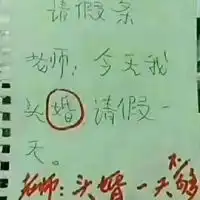 请假条
老师：今天我
头婚请假一
天。
老师：头婚一天不
够